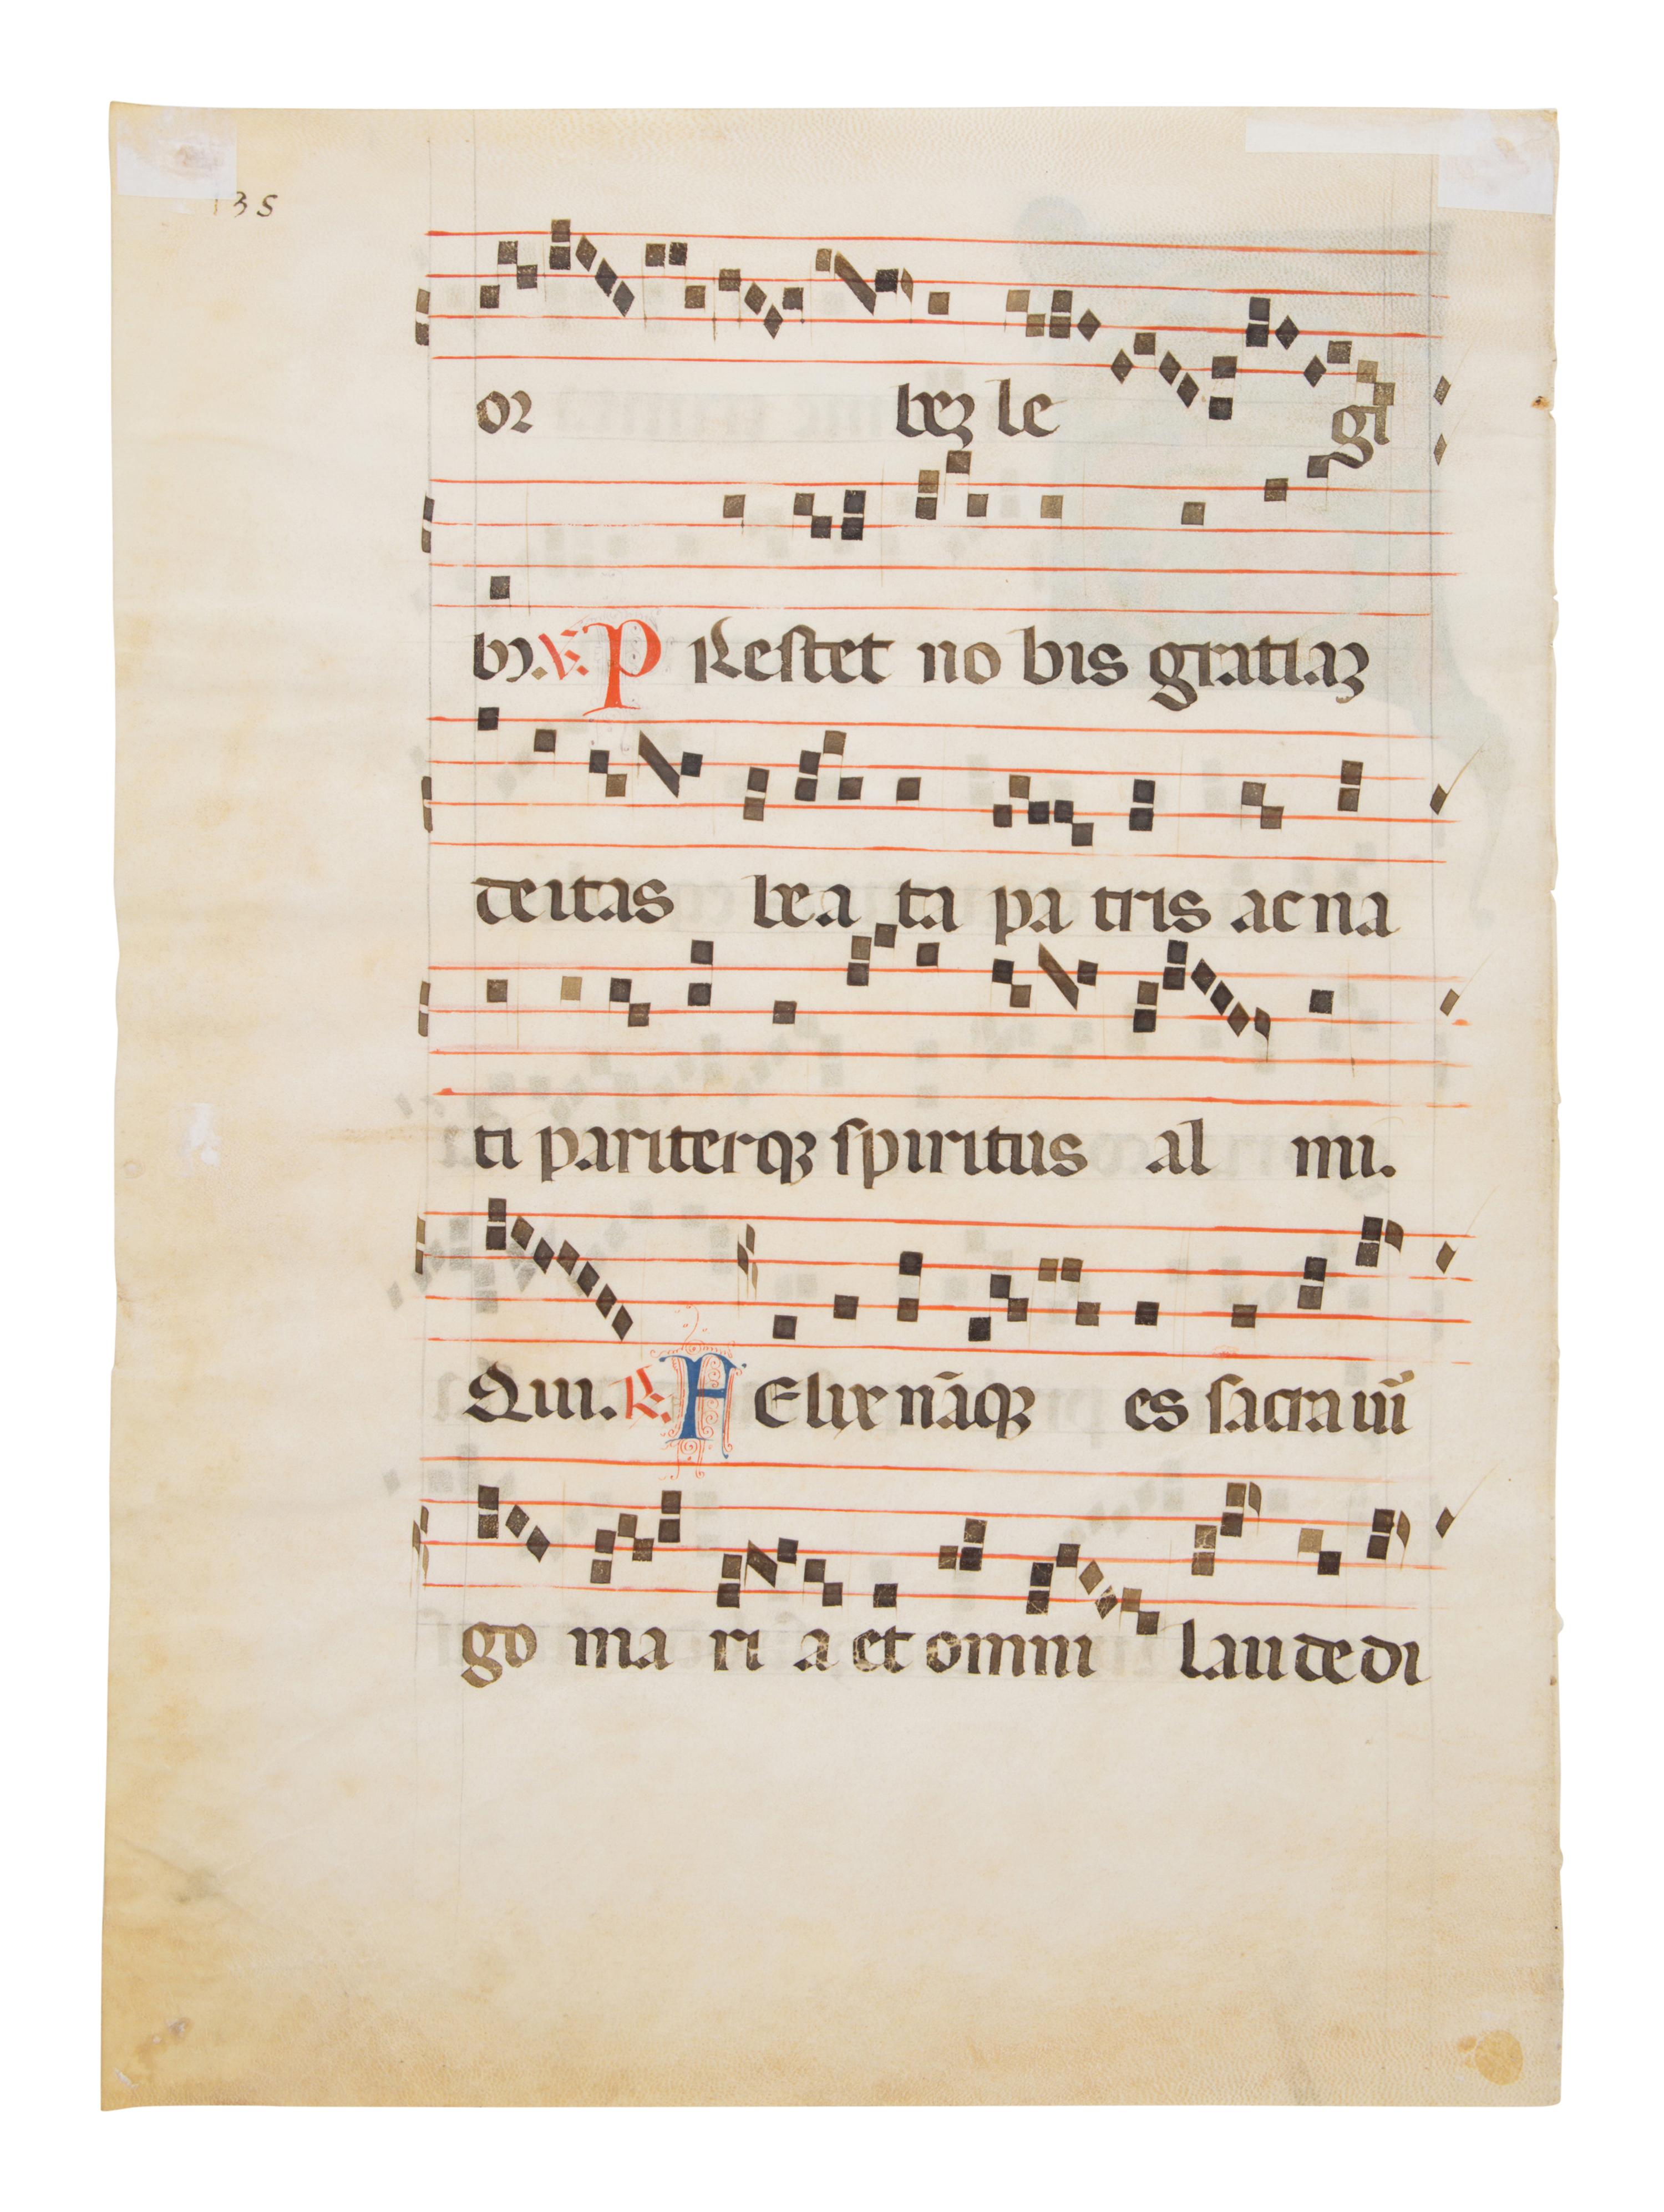 135
or beꝫ le gi
bꝫ. ℣. P Restet no bis gratiaꝫ
deitas bea ta pa tris ac na
ti pariterqꝫ spiritus al mi.
Qui. ℟. F Elix nāqꝫ es sacra uī
go ma ri a et omni laude di